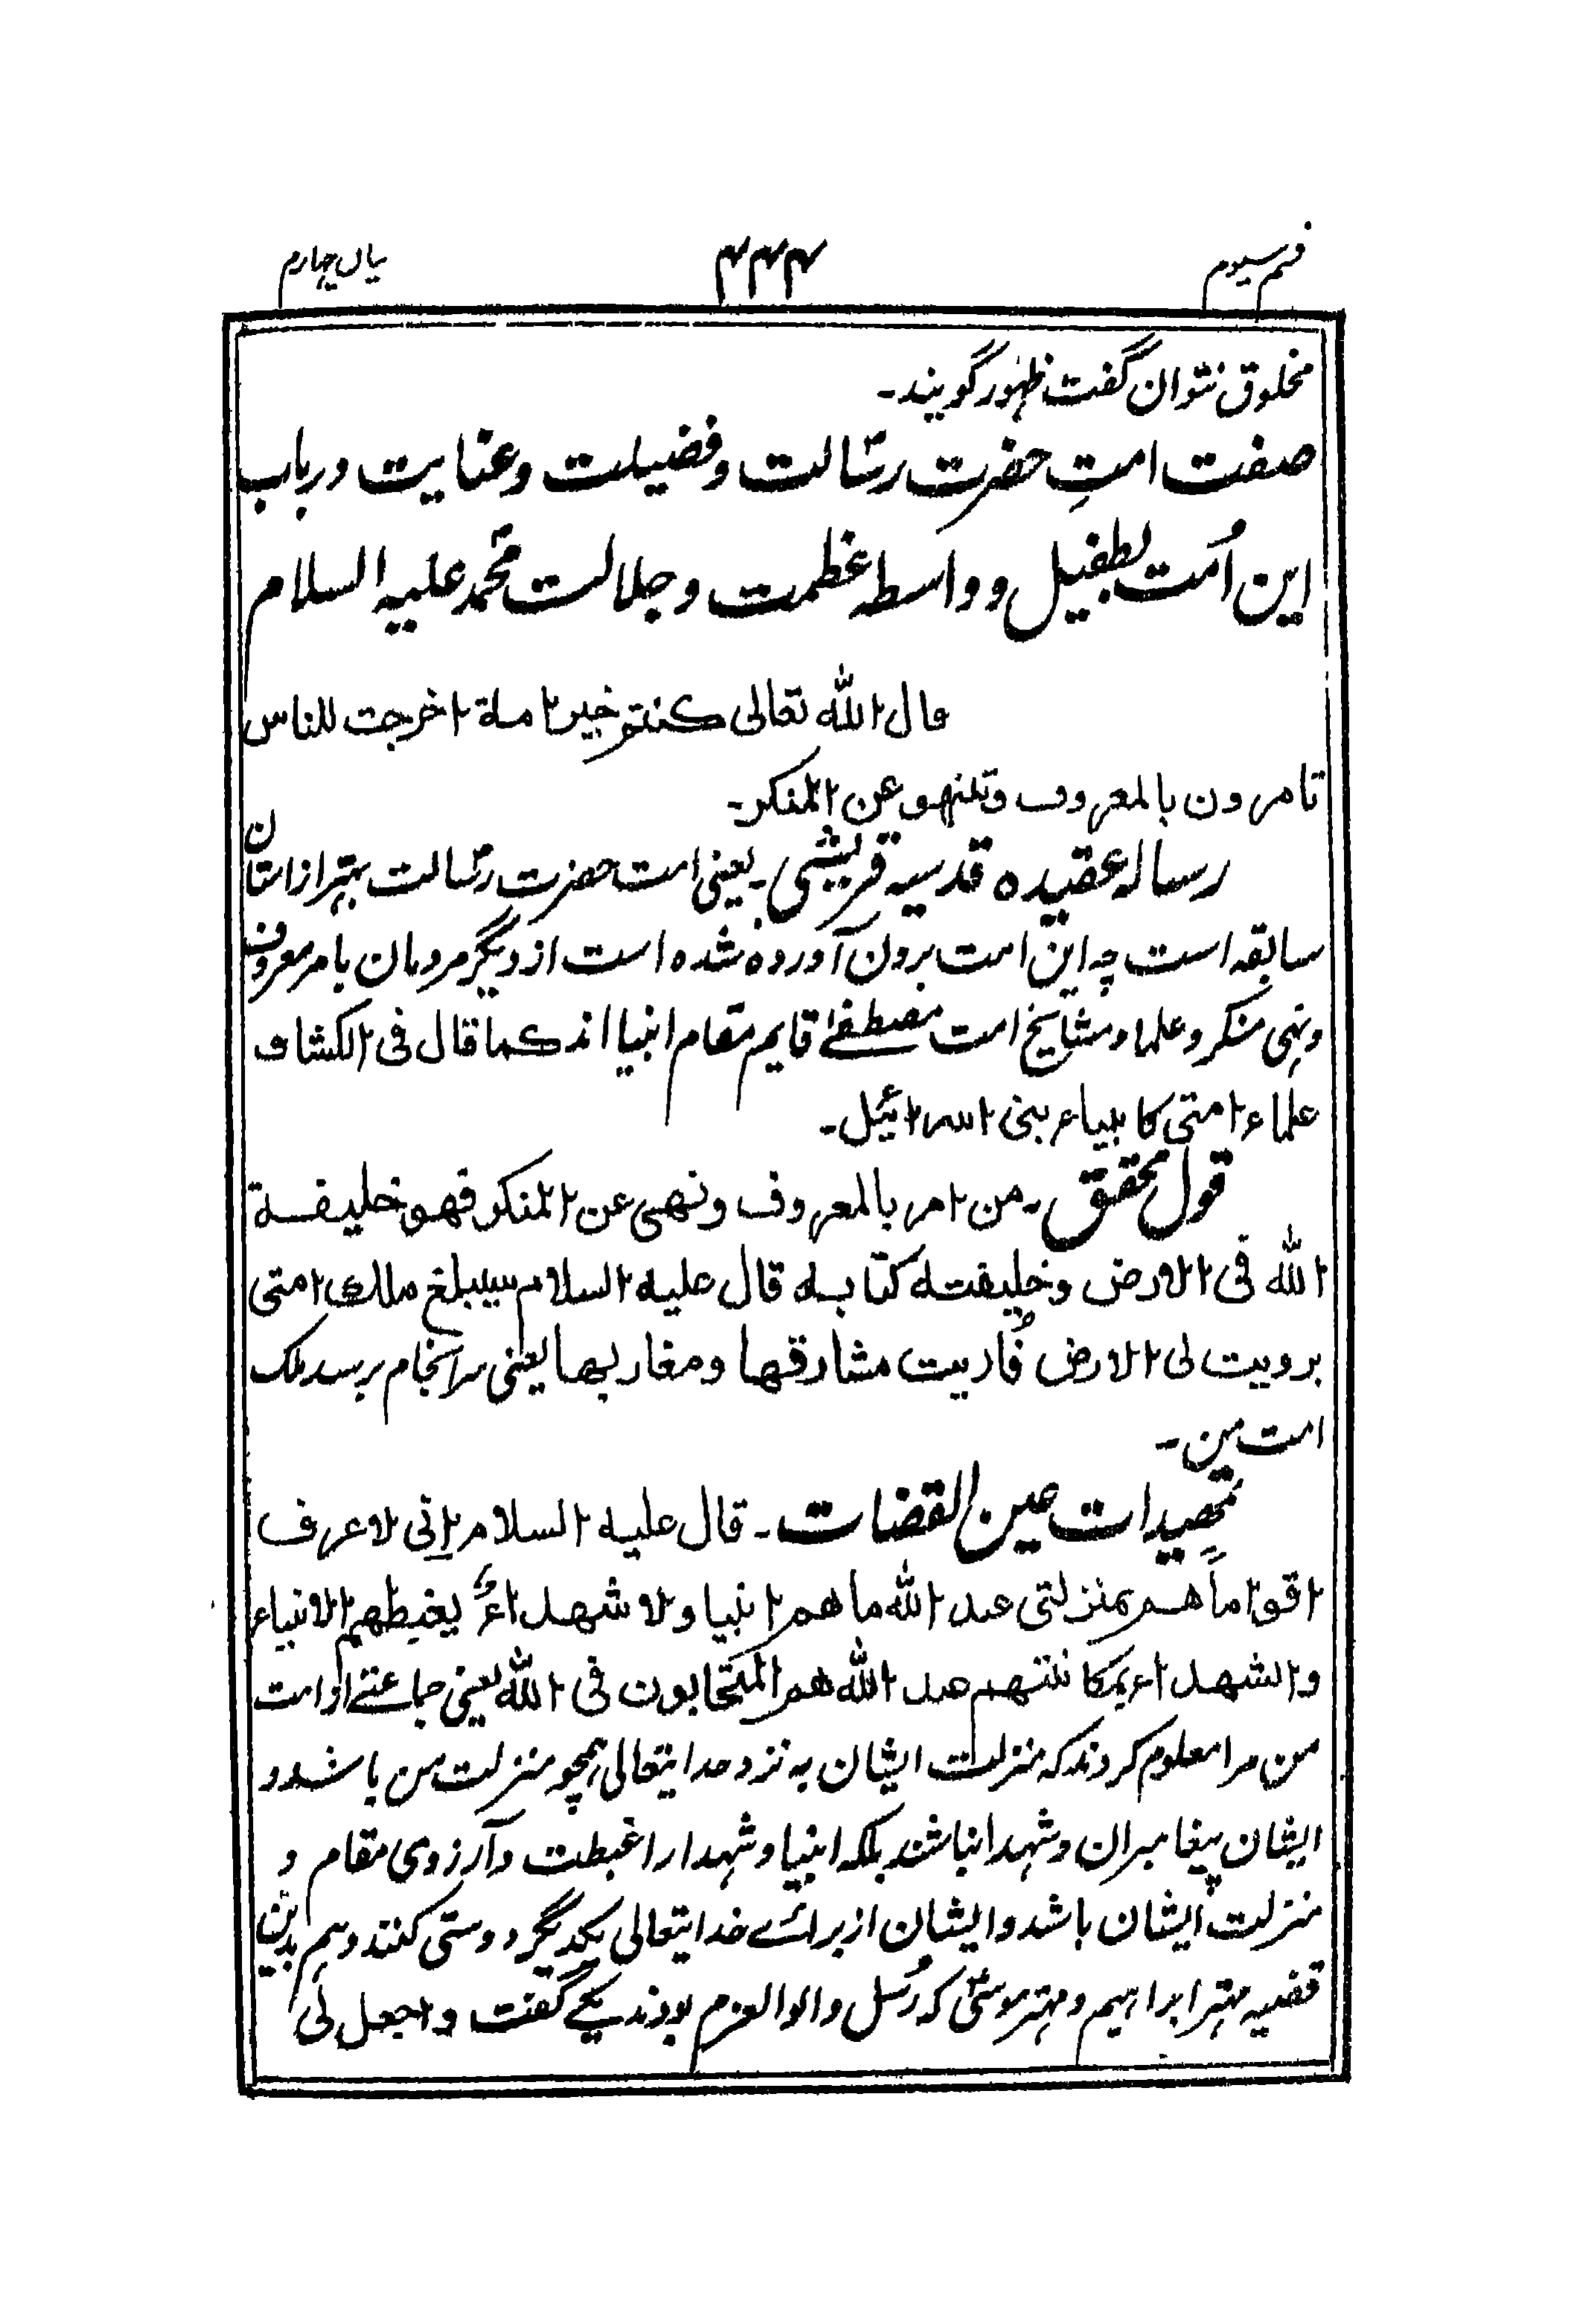 قسم سیوم
۴۴۴
بیان چهارم
مخلوق نتوان گفت ظهور گویند۔
صفت امتِ حضرت رسالت وفضیلت وعنایت درباب
این اُمت بطفیل و واسطه عظمت وجلالت محمد علیه السلام
قال الله تعالی کنتم خیر امة اخرجت للناس
تامرون بالمعروف وتنهو عن المنکر۔
رساله عقیده قدسیه قریشی۔ یعنی امت حضرت رسالت بهتر از امتان
سابقه است چه این امت برون آورده شده است از دیگر مردمان بامر معروف
ونهی منکر وعلما ومشایخ امت مصطفےٰ قایم مقام انبیا اند کما قال فی الکشاف
علماء امتی کانبیاء بنی اسرائیل۔
قول محقق۔ من امر بالمعروف ونهی عن المنکر فهو خلیفة
الله فی الارض وخلیفته کتابه قال علیه السلام سیبلغ ملک امتی
برویت لی الارض فُاریت مشارقها ومغاربها یعنی سرانجام برسد ملک
امت من۔
تمهیدات عین القضات۔ قال علیه السلام اِنی لاعرف
اقواماً هم بمنزلتی عند الله ماهم انبیا ولا شهداءُ یغبطهم الانبیاء
والشهداء بمکانتهم عند الله هم المتحابون فی الله یعنی جماعتے از امت
من مرا معلوم کردند که منزلت ایشان به نزد خدایتعالی همچو منزلت من باشد و
ایشان پیغامبران وشهدا نباشند بلکه انبیا وشهدا را غبطت وآرزوی مقام و
منزلت ایشان باشد وایشان از برائے خدایتعالی یکدیگر دوستی کنند وهم بدین
قضیه مهتر ابراهیم ومهتر موسیٰ که رُسل والوالعزم بودند یکے گفت واجعل لی